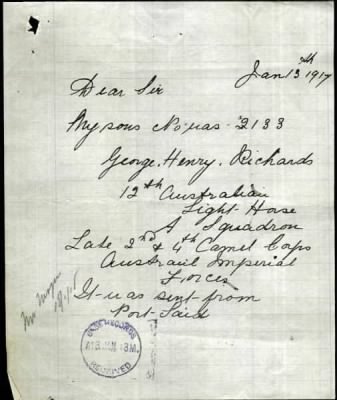 Jan 13th 1917
Dear Sir
My sons No was 2133
George. Henry. Richards
12th Australian
Light Horse
A Squadron
Late 2nd & 4th Camel Corps
Austrail Imperial
Forces
It was sent from
Port-Said
BASE RECORDS
RECEIVED